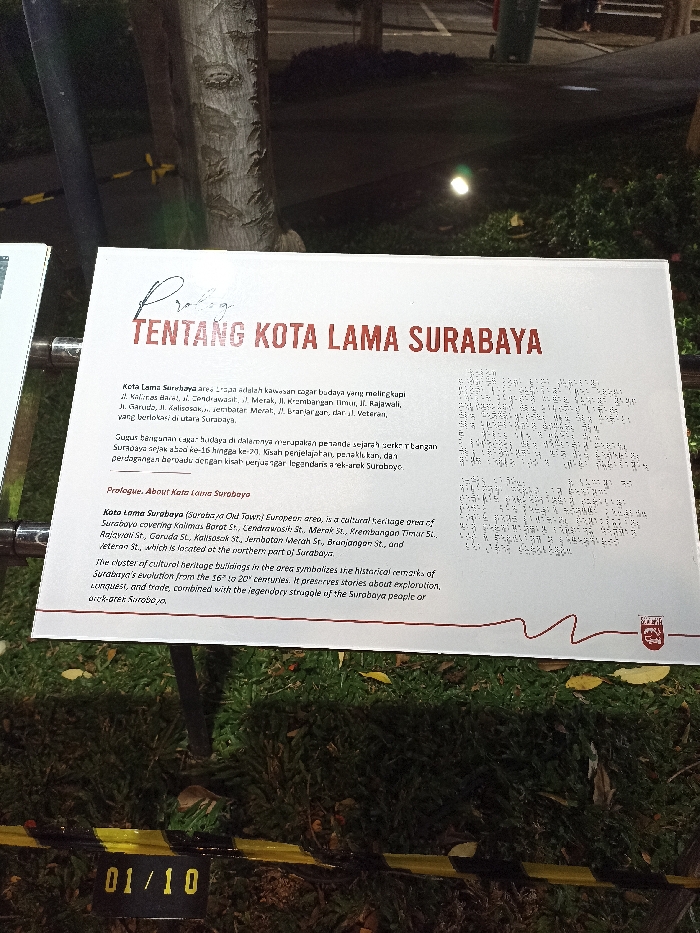 Prolog
TENTANG KOTA LAMA SURABAYA
Kota Lama Surabaya area Eropa adalah kawasan cagar budaya yang melingkupi
Jl. Kalimas Barat, Jl. Cendrawasih, Jl. Merak, Jl. Krembangan Timur, Jl. Rajawali,
Jl. Garuda, Jl. Kalisosok, Jl. Jembatan Merah, Jl. Branjangan, dan Jl. Veteran,
yang berlokasi di utara Surabaya.
Gugus bangunan cagar budaya di dalamnya merupakan penanda sejarah perkembangan
Surabaya sejak abad ke-16 hingga ke-20. Kisah penjelajahan, penaklukan, dan
perdagangan berpadu dengan kisah perjuangan legendaris arek-arek Suroboyo.
Prologue. About Kota Lama Surabaya
Kota Lama Surabaya (Surabaya Old Town) European area, is a cultural heritage area of
Surabaya covering Kalimas Barat St., Cendrawasih St., Merak St., Krembangan Timur St.,
Rajawali St., Garuda St., Kalisosok St., Jembatan Merah St., Branjangan St., and
Veteran St., which is located at the northern part of Surabaya.
The cluster of cultural heritage buildings in the area symbolizes the historical remarks of
Surabaya's evolution from the 16th to 20th centuries. It preserves stories about exploration,
conquest, and trade, combined with the legendary struggle of the Surabaya people or
arek-arek Suroboyo.
01/10